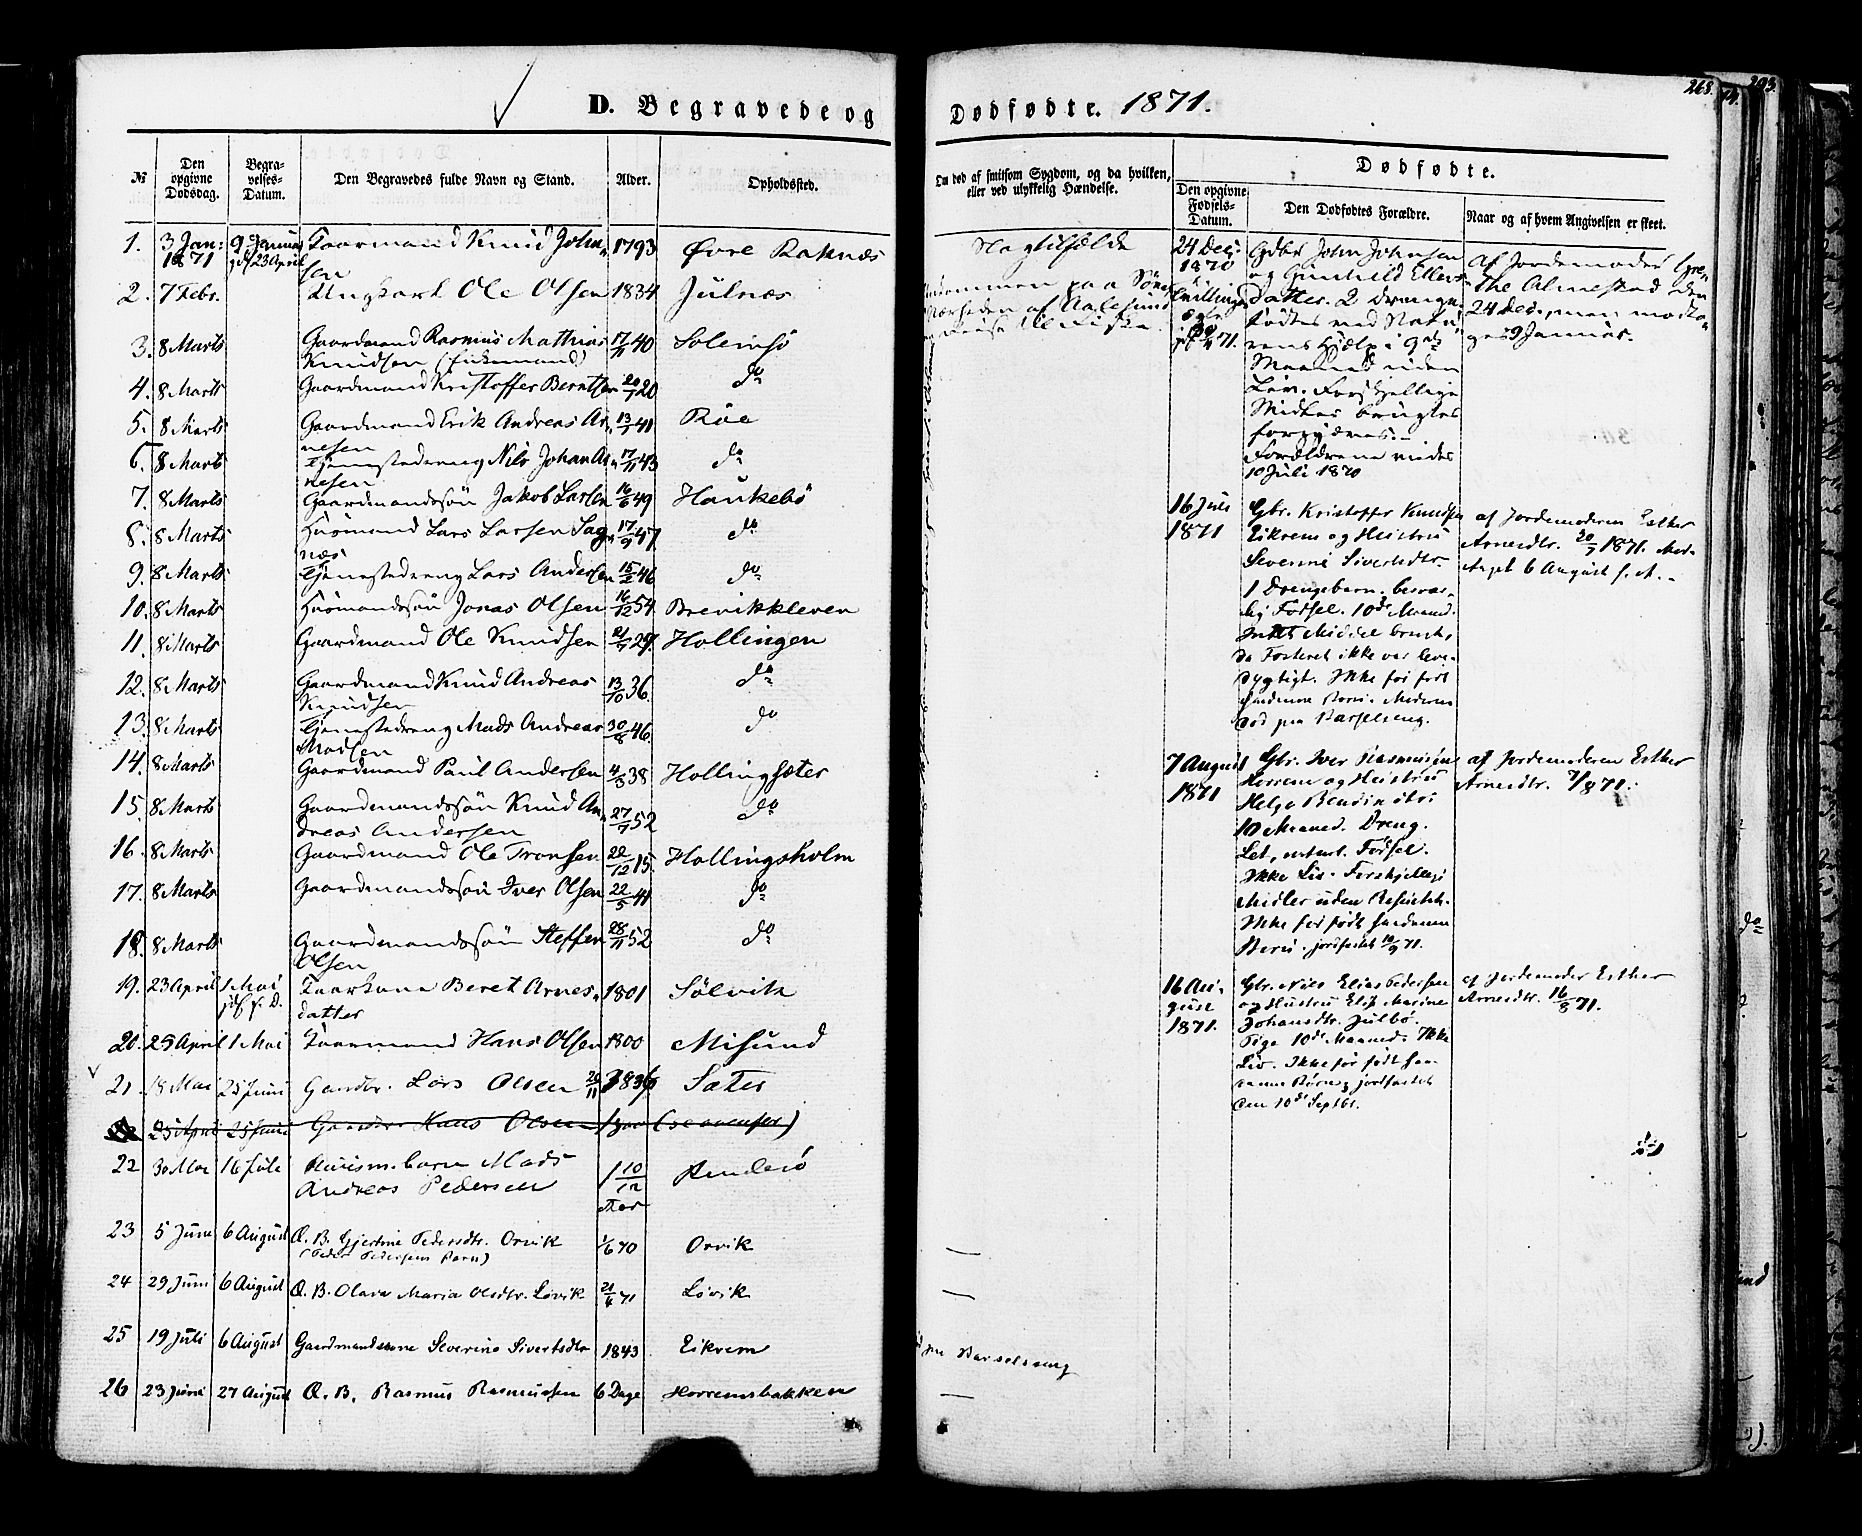 D. Begravede og Dødfødte. 1871.
268.
203.
№
Den opgivne Dødsdag.
Begravelses-Datum.
Den Begravedes fulde Navn og Stand.
Alder.
Opholdssted.
Om død af smitsom Sygdom, og da hvilken, eller ved ulykkelig Hændelse.
Dødfødte.
Den opgivne Fødsels-Datum.
Den Dødfødtes Forældre.
Naar og af hvem Angivelsen er skeet.
1. 3 Jan: 1871 9 Januar Knud John- 1793 Øvre Raknæs
sen
2. 7 Febr. Ungkarl Ole Olsen 1834 Julnæs
3. 8 Marts Gaardmand Rasmus Mathias 17/11 40 Solemsö
Knudsen
4. 8 Marts Gaardmand Kristoffer Berntsen 20/7 20 do
5. 8 Marts Gaardmand Erik Andreas Ar- 13/7 41 Röe
nesen
6. 8 Marts Tjenestedreng Nils Johan Ar- 17/11 43 do
nesen
7. 8 Marts Gaardmandssön Jakob Larsen 16/6 49 Haukebö
8. 8 Marts Huusmand Lars Larsen Sag- 17/9 47 do
næs
9. 8 Marts Tjenestedreng Lars Andersen 46 do
10. 8 Marts Huusmandssön Jonas Olsen 16/12 54 Brevikkleven
11. 8 Marts Gaardmand Ole Knudsen 29 Hollingen
12. 8 Marts Gaardmand Knud Andreas 13/10 36. do
Knudsen
13. 8 Marts Tjenestedreng Mads Andreas 30/8 46. do
Madsen
14. 8 Marts Gaardmand Paul Andersen 4/3 38 Hollingsæter
15. 8 Marts Gaardmandssön Knud An- 27/7 52 do
dreas Andersen
16. 8 Marts Gaardmand Ole Tronsen 22/12 15. Hollingsholm
17. 8 Marts Gaardmandssön Iver Olsen 22/5 41 do
18. 8 Marts Gaardmandssön Steffen 28/11 52 do
Olsen
19. 23 April 1 Mai Beret Arnes- 1801 Sølvik
datter
20. 25 April 1 Mai Hans Olsen 1800 Misund
21 18 Mai 25 Juni Gaardbr. Lars Olsen Sæter
25 April 25 Juni Hans Olsen
22 30 Mai 16 Juli Huusm. barn Mads 1 10/12 Aar
Andreas Pedersen
23 5 Juni 6 August Gjertine Pedersdtr. Orvik 1/6 70 Orvik
(Peder Pedersens Barn)
24 29 Juni 6 August Olava Maria Olsdtr. Løvik 21/4 71 Løvik
25 19 Juli 6 August Gaardmandskone Severine Sivertsdtr 1843 Eikrem
paa Barselseng
26 23 Juni 27 August Rasmus Rasmussen 6 Dage Horremsbakken
24 Dec. 1870
Gdbr John Johnsen
og Gunhild Ellers-
datter. 2 Drenge
fødtes ved Natu-
rens Hjælp i 9de
Maaned uden
Liv. Forskjellige
Midler brugtes
Forældrene viedes
10 Juli 1870
Af Jordemoder Gre-
the Almestad den
24 Dec., men modta-
get 9 Januar.
16 Juli
1871
Gbr. Kristoffer Knudsen
Eikrem og Hustru
Severine Sivertsdtr.
1 Drengebarn. besvær-
lig Fødsel. 10de Maaned.
Intet Middel brugt,
da Fosteret ikke var leve-
dygtigt. Ikke før født
Moderen
død paa Barselseng.
af Jordemoderen Esther
Arnesdtr. 20/7 1871. Mod-
taget 6 August s. A.
7 August
1871
Gbr. Iver Rasmussen
Horrem og Hustru
10 Maaned. Dreng.
Let, naturl. Fødsel.
Ikke Liv. Forskjellige
Midler uden Resultat.
Ikke før født
Børn. jordfæstet 10/9 71.
af Jordemoderen Esther
Arnesdtr. 7/8 71.
16 Au-
gust
1871.
Gbr. Nils Elias Pedersen
og Hustru Marine
Johansdtr. Julbø.
Pige 10de Maaned. Ikke
Liv. Ikke før født
Børn, jordfæstet
den 10de Septbr.
af Jordemoder Esther
Arnesdtr. 16/8 71.